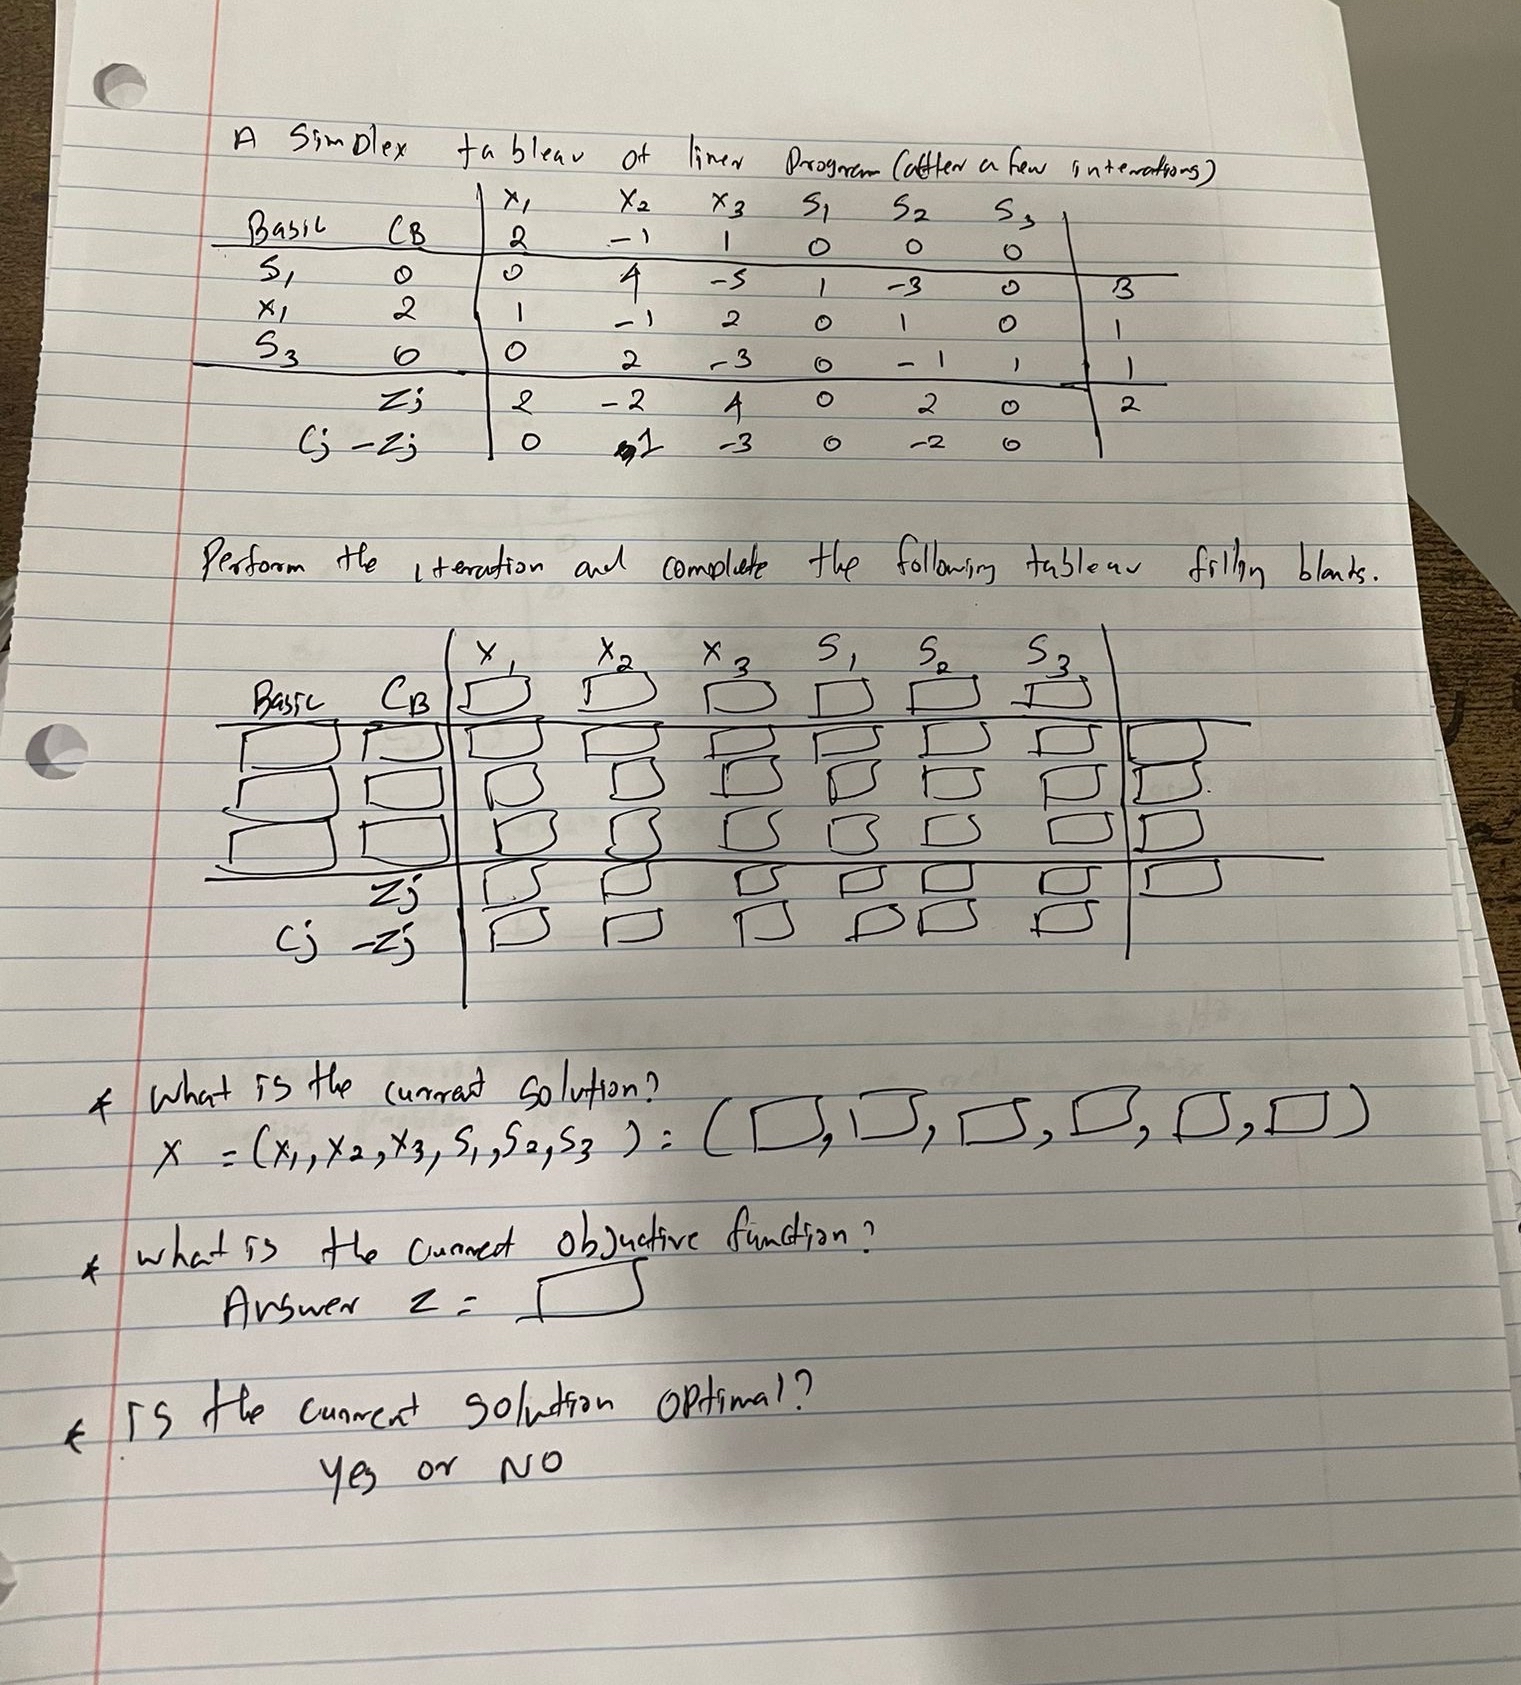 A Simplex tableau of liner Program (after a few interations)
X1 X2 X3 S1 S2 S3
Basic CB 2 -1 1 0 0 0
S1 0 0 4 -5 1 -3 0 3
X1 2 1 -1 2 0 1 0 1
S3 0 0 2 -3 0 -1 1 1
Zj 2 -2 4 0 2 0 2
Cj -Zj 0 1 -3 0 -2 0
Perform the iteration and complete the following tableau fillin blanks.
X1 X2 X3 S1 S2 S3
Basic CB
Zj
Cj -Zj
* What is the current solution?
X = (X1, X2, X3, S1, S2, S3) = ( , , , , , )
* What is the current objective function?
Answer Z =
* Is the current solution optimal?
Yes or NO